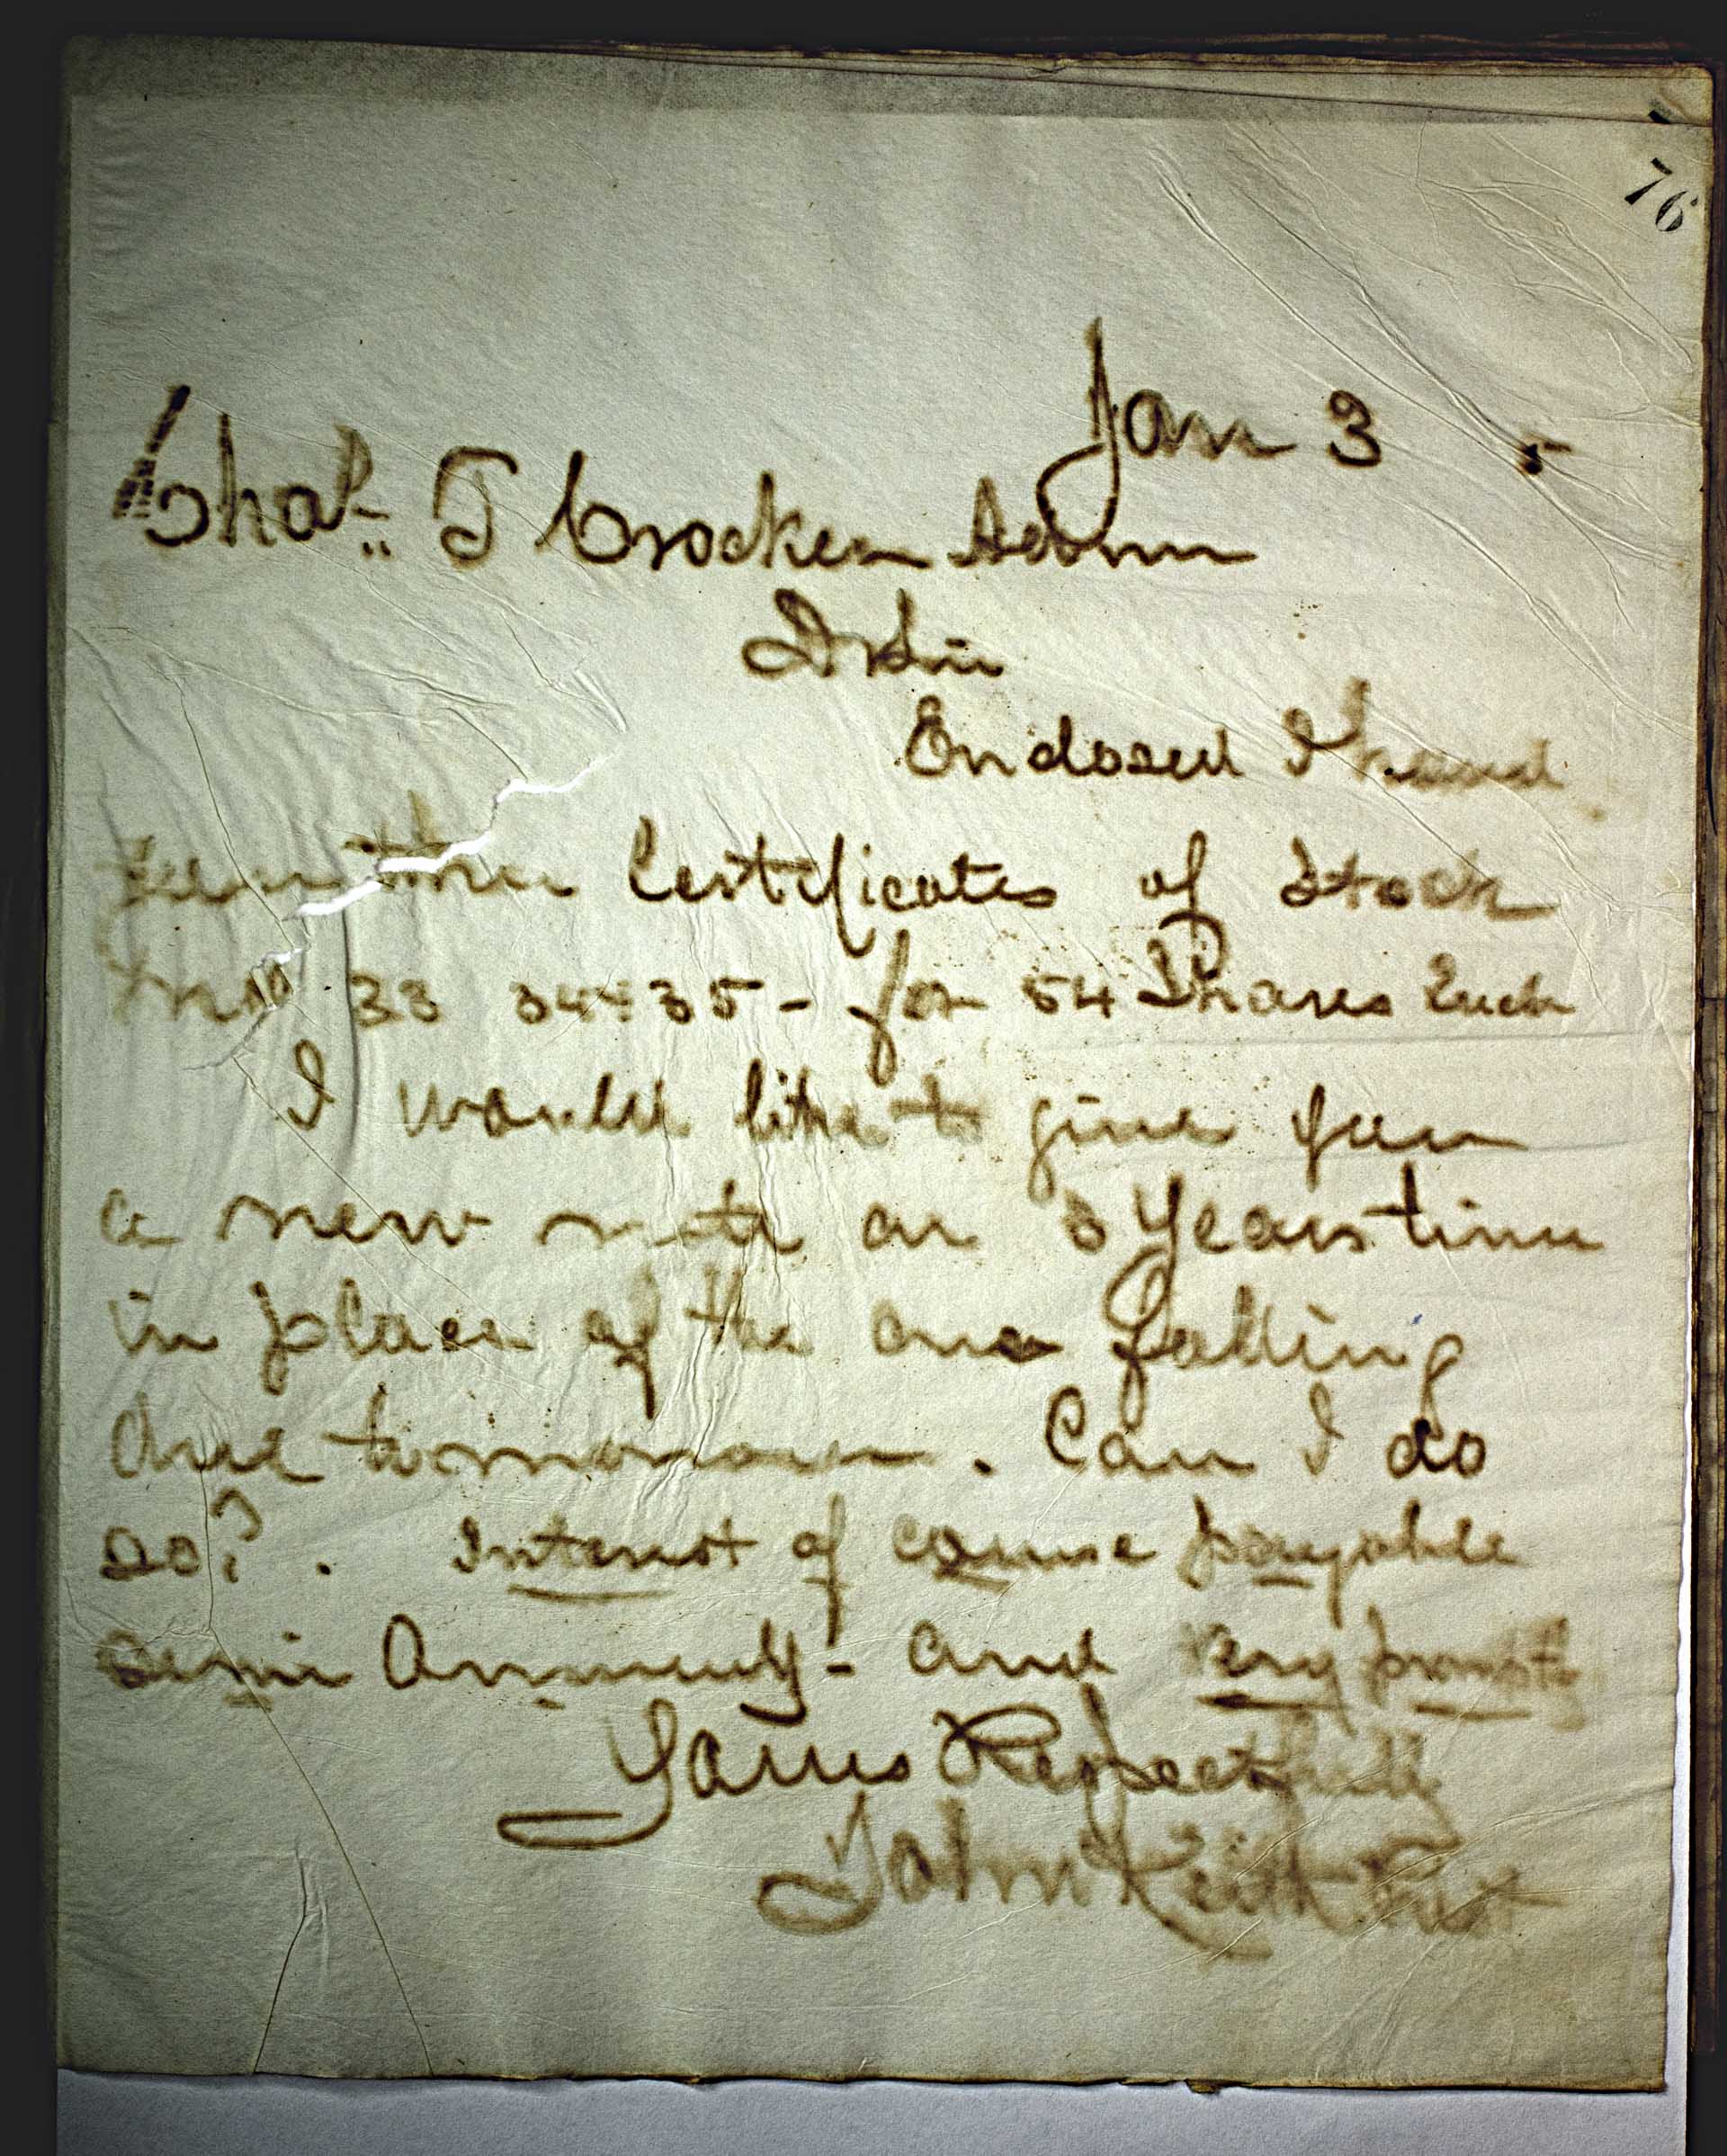 76
Jan 3 5
Chas. T Crocker Admr
Dr Sir
Enclosed I hand
you three Certificates of Stock
Nos 33 34 & 35 - for 54 Shares Each
I would like to give you
a new note on 3 Years time
in place of the one falling
due tomorrow. Can I do
so?. Interest of course payable
semi Annualy - and very promptly
Yours Respectfully
John Keith Prest